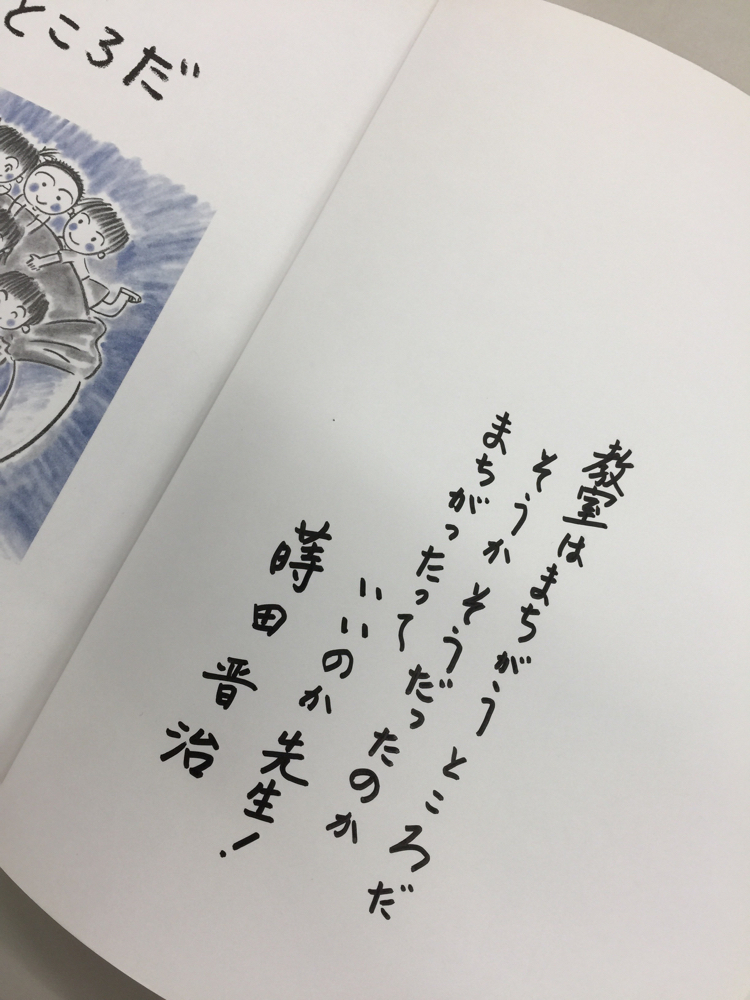 ところだ
教室はまちがうところだ
そうかそうだったのか
まちがったって
いいのか先生!
蒔田晋治